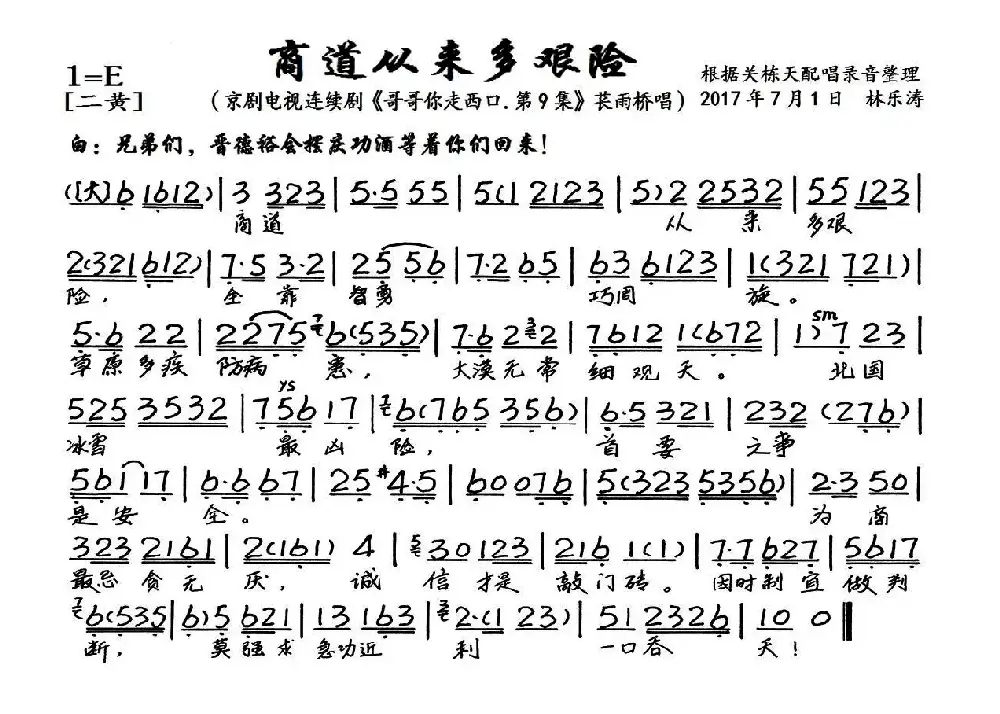 商道从来多艰险
1=E
[二黄]
(京剧电视连续剧《哥哥你走西口.第9集》苌雨桥唱)
根据关栋天配唱录音整理
2017年7月1日 林乐涛
白：兄弟们，晋德裕会摆庆功酒等着你们回来！
([大]6 1612) | 3 323 | 5·5 55 | 5(1 2123 | 5)2 2532 | 55 123 |
商道 从来 多艰
2(321 612) | 7·5 3·2 | 25 56 | 7·2 65 | 63 6123 | 1(321 721) |
险， 全靠 智勇 巧周 旋。
5·6 22 | 2275 7 6(535) | 7·6 2 3 2 | 7612 1(672 | 1) 7 23 |
sm
草原多疾 防病 患， 大漠无常 细观天。 北国
525 3532 | 756 17 | 7 6(765 356) | 6·5 321 | 232 (276) |
ys
冰雪 最凶 险， 首要 之事
561 17 | 6·6 67 | 25 #4·5 | 60076 | 5(323 5356) | 2·3 50 |
是安 全。 为商
323 2161 | 2(161) 4 | 5 30 123 | 216 1(1) | 7·7 627 | 5617 |
最忌 贪无 厌， 诚 信才是 敲门砖。 因时制宜 做判
7 6(535 | 6)5 621 | 13 163 | 3 2·(1 23) | 51 2326 | 10 0 ‖
断， 莫强求 急功近 利 一口吞 天！